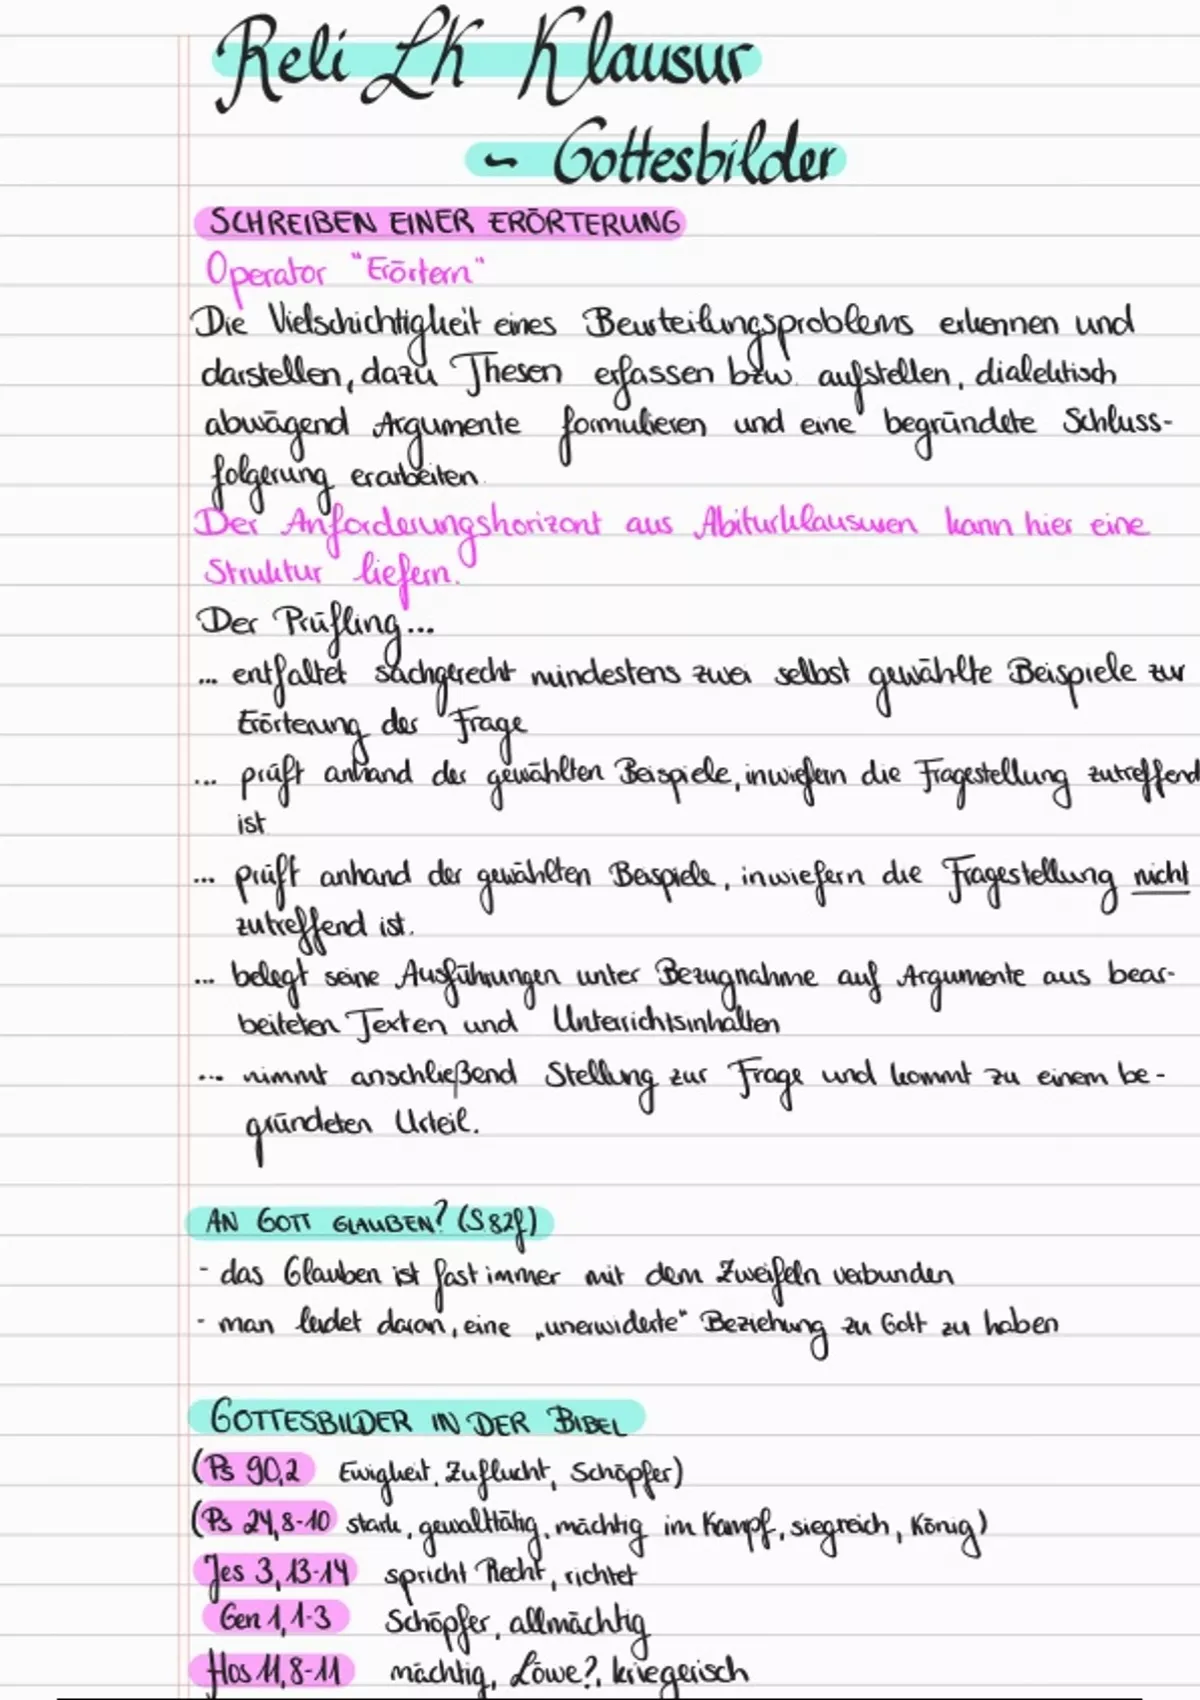 Reli LK Klausur
- Gottesbilder
SCHREIBEN EINER ERÖRTERUNG
Operator "Erörtern"
Die Vielschichtigkeit eines Beurteilungsproblems erkennen und
darstellen, dazu Thesen erfassen bzw. aufstellen, dialektisch
abwägend Argumente formulieren und eine begründete Schluss-
folgerung erarbeiten.
Der Anforderungshorizont aus Abiturklausuren kann hier eine
Struktur liefern.
Der Prüfling...
... entfaltet sachgerecht mindestens zwei selbst gewählte Beispiele zur
Erörterung der Frage
... prüft anhand der gewählten Beispiele, inwiefern die Fragestellung zutreffend
ist
... prüft anhand der gewählten Beispiele, inwiefern die Fragestellung nicht
zutreffend ist.
... belegt seine Ausführungen unter Bezugnahme auf Argumente aus bear-
beiteten Texten und Unterrichtsinhalten
... nimmt anschließend Stellung zur Frage und kommt zu einem be-
gründeten Urteil.
AN GOTT GLAUBEN? (S82f)
- das Glauben ist fast immer mit dem Zweifeln verbunden
- man leidet daran, eine „unerwiderte" Beziehung zu Gott zu haben
GOTTESBILDER IN DER BIBEL
(Ps 90,2 Ewigkeit, Zuflucht, Schöpfer)
(Ps 24,8-10 stark, gewalttätig, mächtig im Kampf, siegreich, König)
Jes 3,13-14 spricht Recht, richtet
Gen 1,1-3 Schöpfer, allmächtig
Hos 11,8-11 mächtig, Löwe?, kriegerisch